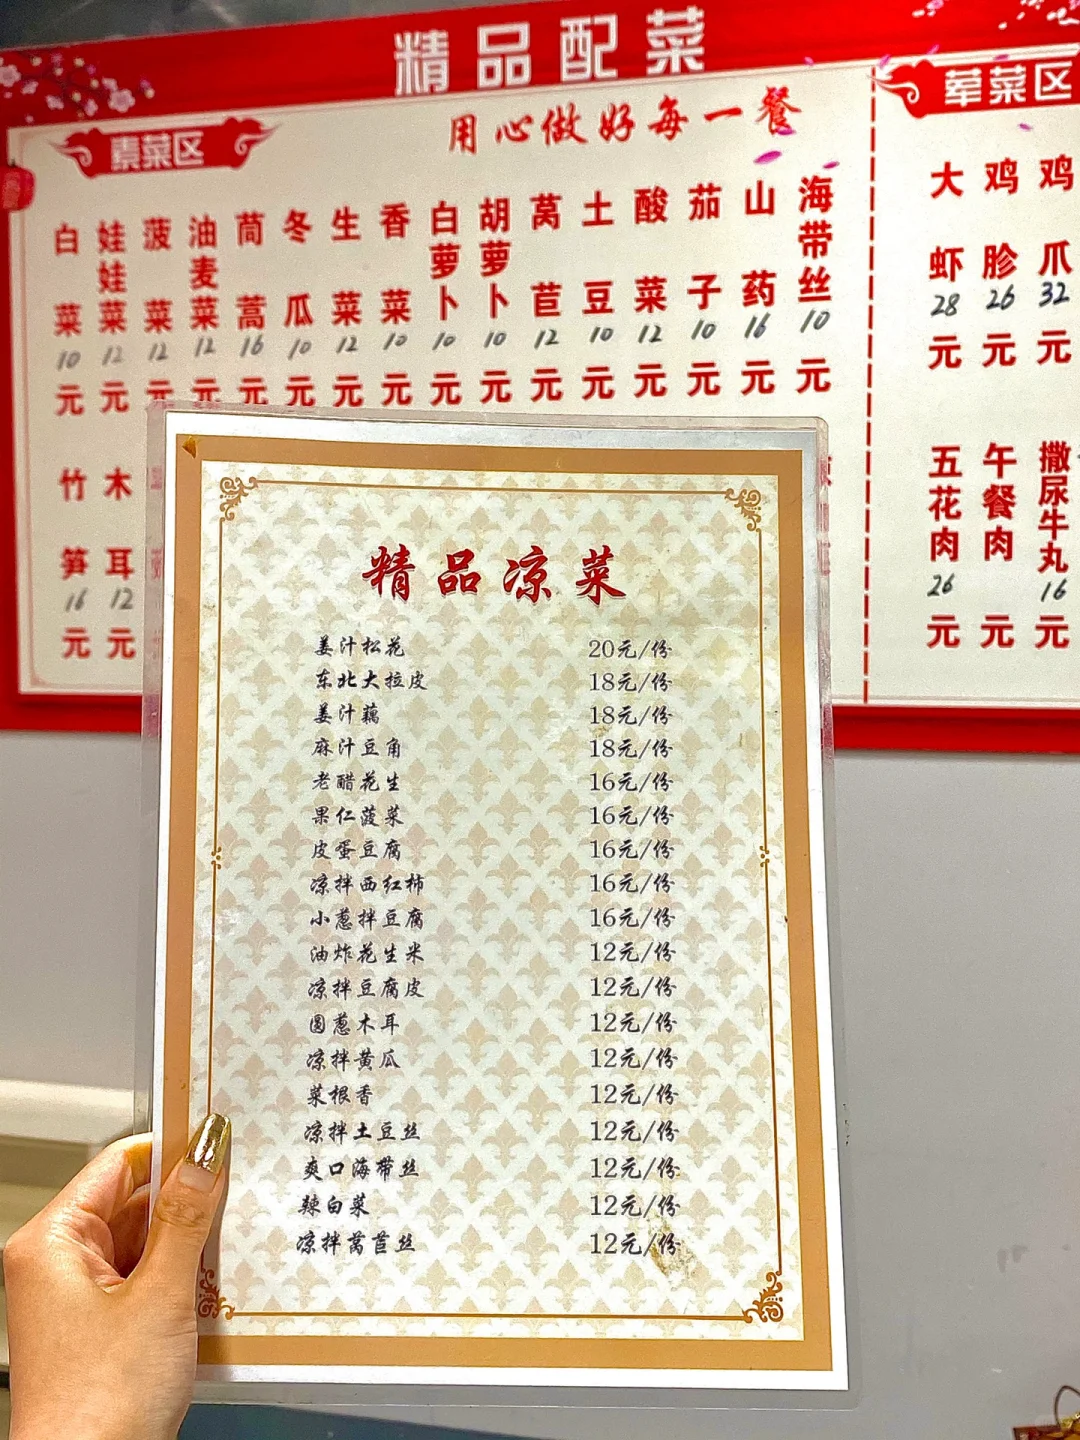 精品配菜
用心做好每一餐
素菜区
白菜 10元
娃娃菜 12元
菠菜 12元
油麦菜 12元
茼蒿 16元
冬瓜 10元
生菜 12元
香菜 10元
白萝卜 10元
胡萝卜 10元
莴苣 12元
土豆 10元
酸菜 12元
茄子 10元
山药 16元
海带丝 10元
竹笋 16元
木耳 12元
荤菜区
大虾 28元
鸡胗 26元
鸡爪 32元
五花肉 26元
午餐肉 元
撒尿牛丸 16元
精品凉菜
姜汁松花 20元/份
东北大拉皮 18元/份
姜汁藕 18元/份
麻汁豆角 18元/份
老醋花生 16元/份
果仁菠菜 16元/份
皮蛋豆腐 16元/份
凉拌西红柿 16元/份
小葱拌豆腐 16元/份
油炸花生米 12元/份
凉拌豆腐皮 12元/份
圆葱木耳 12元/份
凉拌黄瓜 12元/份
菜根香 12元/份
凉拌土豆丝 12元/份
爽口海带丝 12元/份
辣白菜 12元/份
凉拌莴苣丝 12元/份